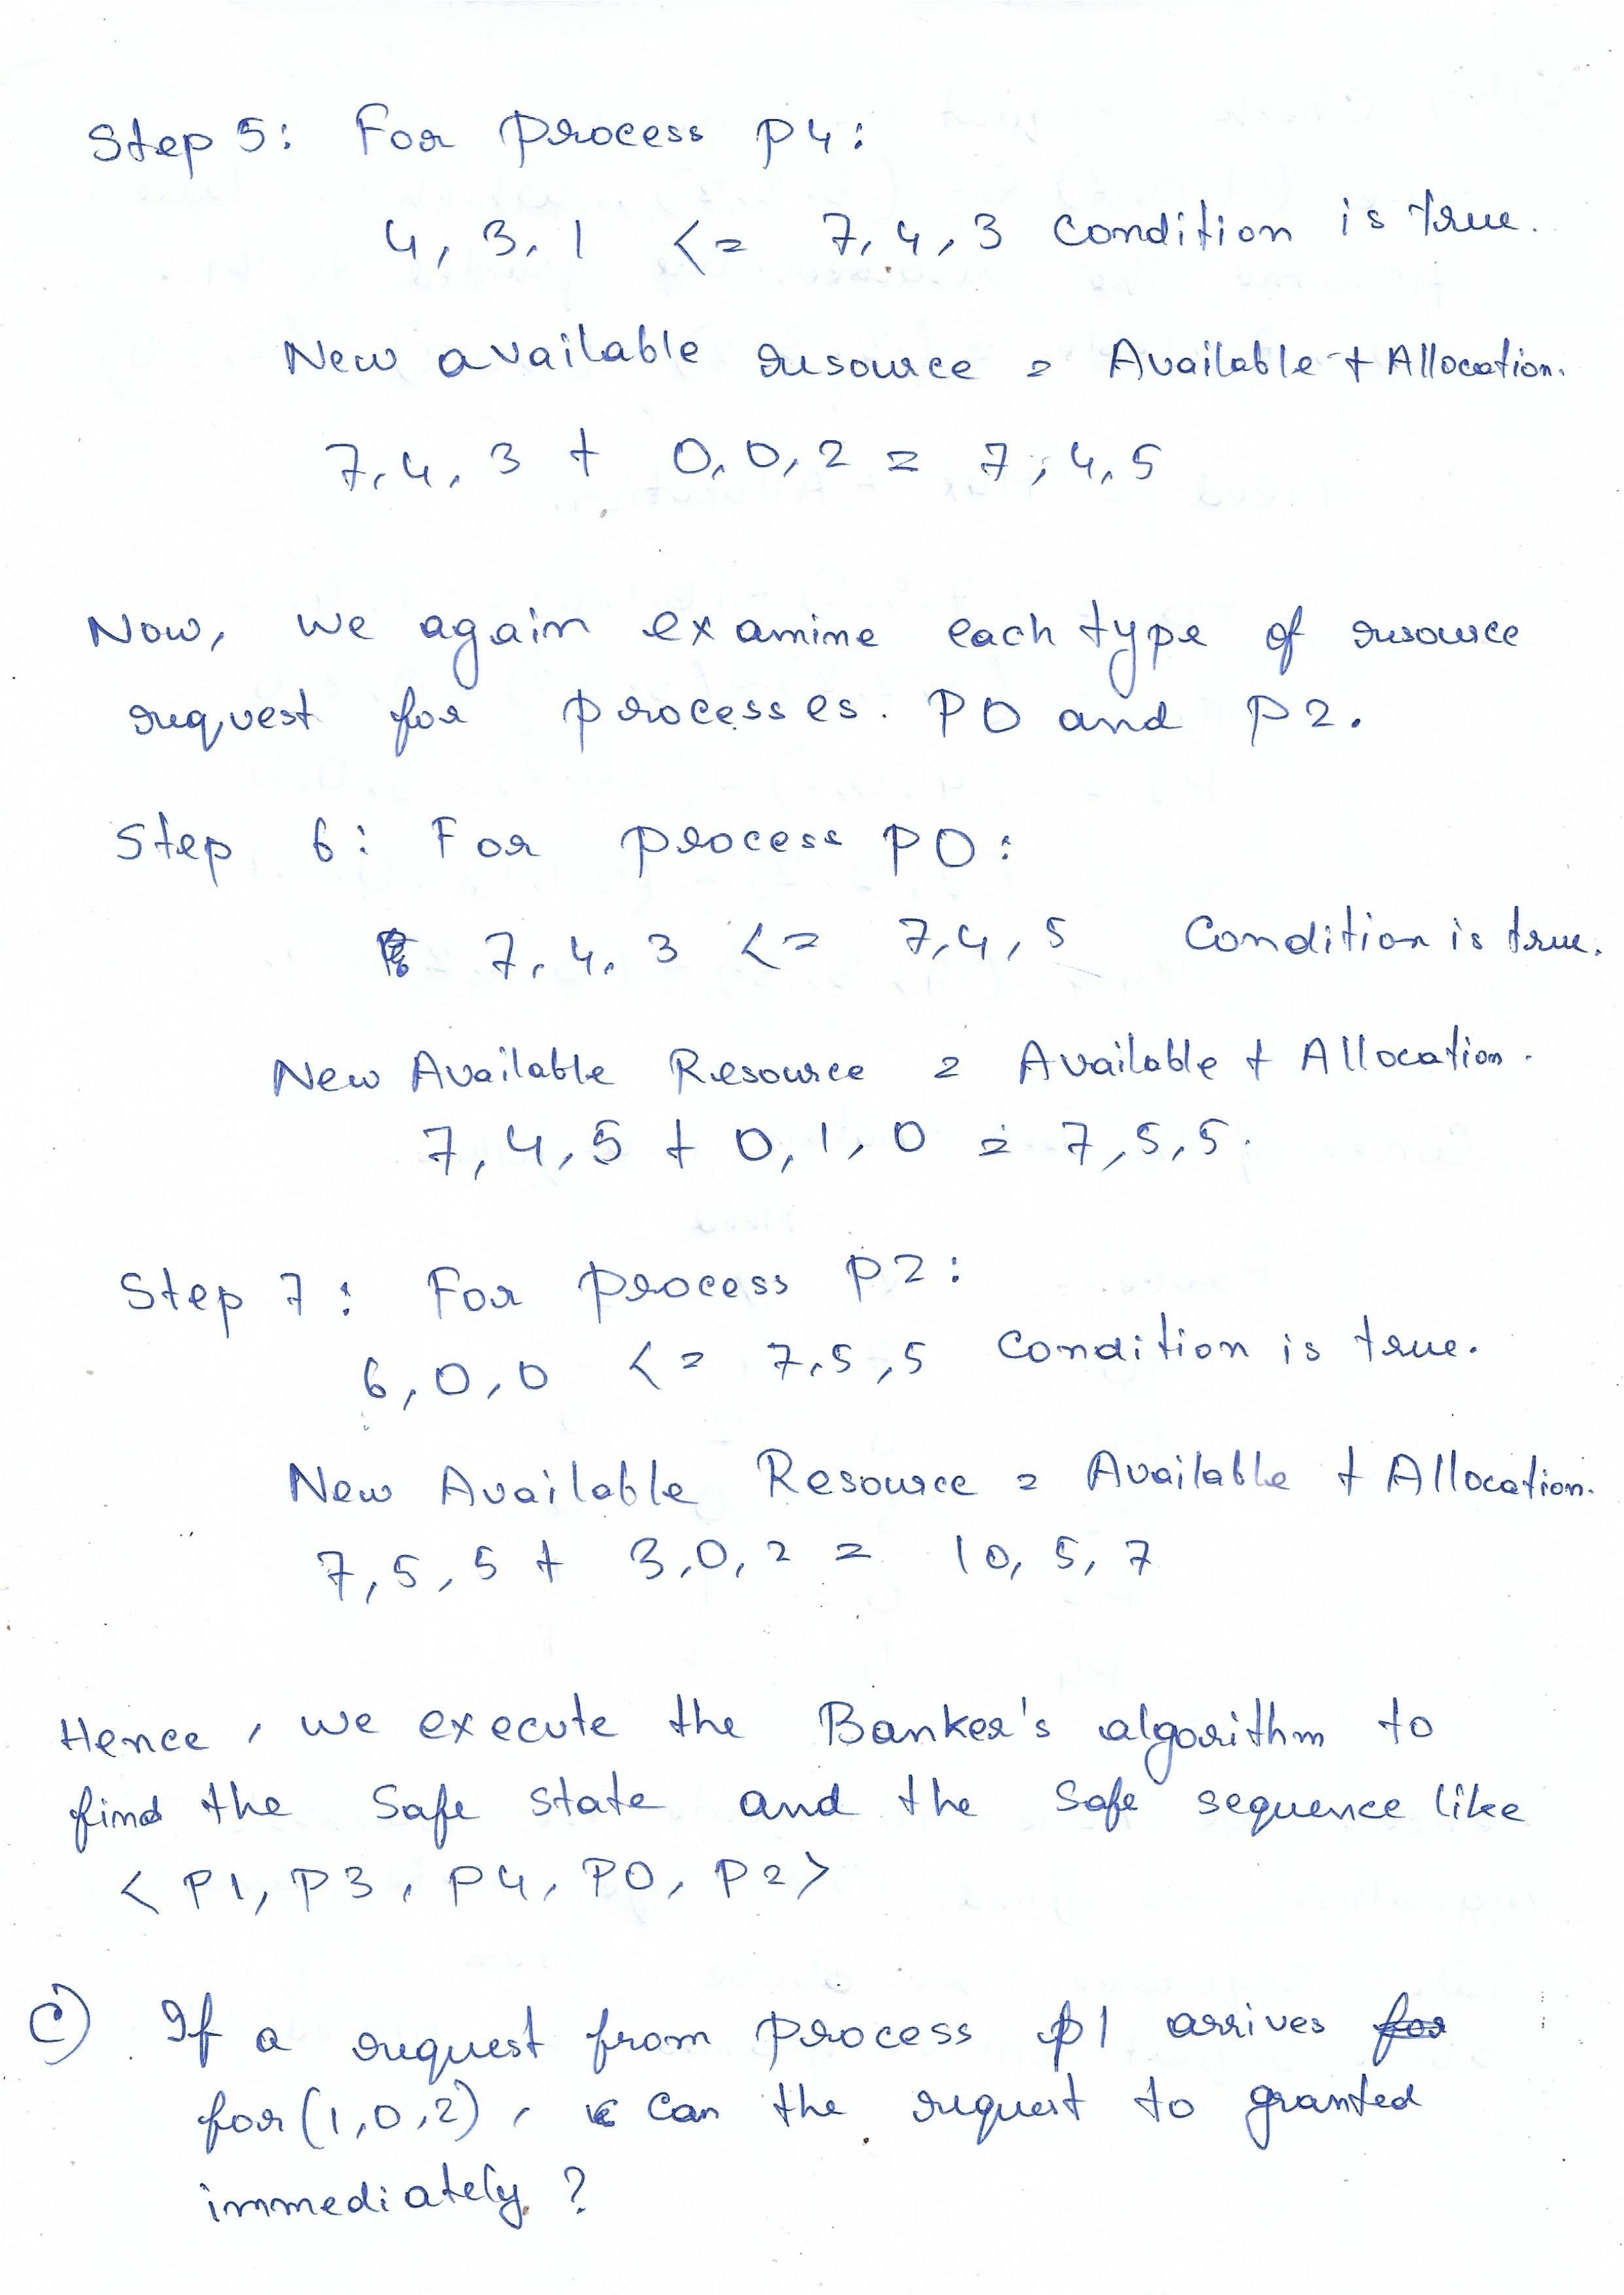 Step 5: For process P4:
4, 3, 1 <= 7, 4, 3 Condition is true.
New available resource = Available + Allocation.
7, 4, 3 + 0, 0, 2 = 7, 4, 5
Now, we again examine each type of resource
request for processes. P0 and P2.
Step 6: For process P0:
7, 4, 3 <= 7, 4, 5 Condition is true.
New Available Resource = Available + Allocation.
7, 4, 5 + 0, 1, 0 = 7, 5, 5.
Step 7: For process P2:
6, 0, 0 <= 7, 5, 5 Condition is true.
New Available Resource = Available + Allocation.
7, 5, 5 + 3, 0, 2 = 10, 5, 7
Hence, we execute the Banker's algorithm to
find the safe state and the safe sequence like
< P1, P3, P4, P0, P2>
C) If a request from process p1 arrives for
for (1,0,2), can the request to granted
immediately?